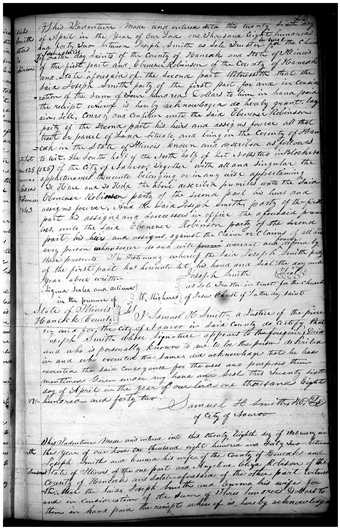 This Indenture Made and entered into this twenty sixth day
of April in the Year of our Lord one Thousand eight hundred
and forty two between Joseph Smith as sole Trustee
of the County of Hancock and State of Illinois
of the first part and Ebenezer Robinson of the County of Hancock
and State aforesaid of the second part Witnesseth that the
said Joseph Smith party of the first part for and in consid
eration of the sum of hundred Dollars to him in hand paid
the receipt whereof is hereby acknowledged do hereby grant, bar
gain, sell, convey and confirm unto the said Ebenezer Robinson
party of the second part his heirs and assigns forever all that
tract or parcel of Land situate and being in the County of Han
cock in the State of Illinois known and described as follows
to wit. The South half of the North half of Lot
of the City of Nauvoo, together with all and singular the
appurtenances thereunto belonging or in any wise appertaining
To Have and To Hold the above described premises unto the said
Ebenezer Robinson party of the second part his heirs and
assigns forever. And the said Joseph Smith, party of the first
part his assigns and successors in office the aforesaid premi
ses unto the said Ebenezer Robinson party of the second
part his heirs and assigns against the claim or claims of all and
every person whomsoever do and will forever warrant and defend by
these presents. In Testimony whereof the said Joseph Smith party
of the first part has hereunto set his hand and seal the day and
year above written
Joseph Smith
Signed Sealed and delivered
as sole Trustee in trust for the Church
in the presence of
W. Richards of Jesus Christ of Latter day Saints
State of Illinois
Hancock County
I Samuel H. Smith, a Justice of the peace
in and for the City of Nauvoo in said County do Certify that
Joseph Smith whose Signature appears to the foregoing Deed
and who is personally known to me to be the person described
in and who executed the same did acknowledge that he had
executed the said conveyance for the uses and purposes therein
mentioned Given under my hand and Seal this Twenty Eighth
day of April in the Year of our Lord one thousand Eight
hundred and forty two
Samuel H Smith
of City of Nauvoo
This Indenture Made and entered into this twenty eighth day of
the year of our Lord one thousand eight hundred and forty two between
Joseph Smith and Emma his wife of the County of Hancock and
State of Illinois of the one part and Angeline Eliza Robinson of the
County of Hancock and State of Illinois of the other part Witnes
seth that the said Joseph Smith and Emma his wife for
and in consideration of the sum of Three hundred Dollars to
them in hand paid the receipt whereof is hereby acknowledged